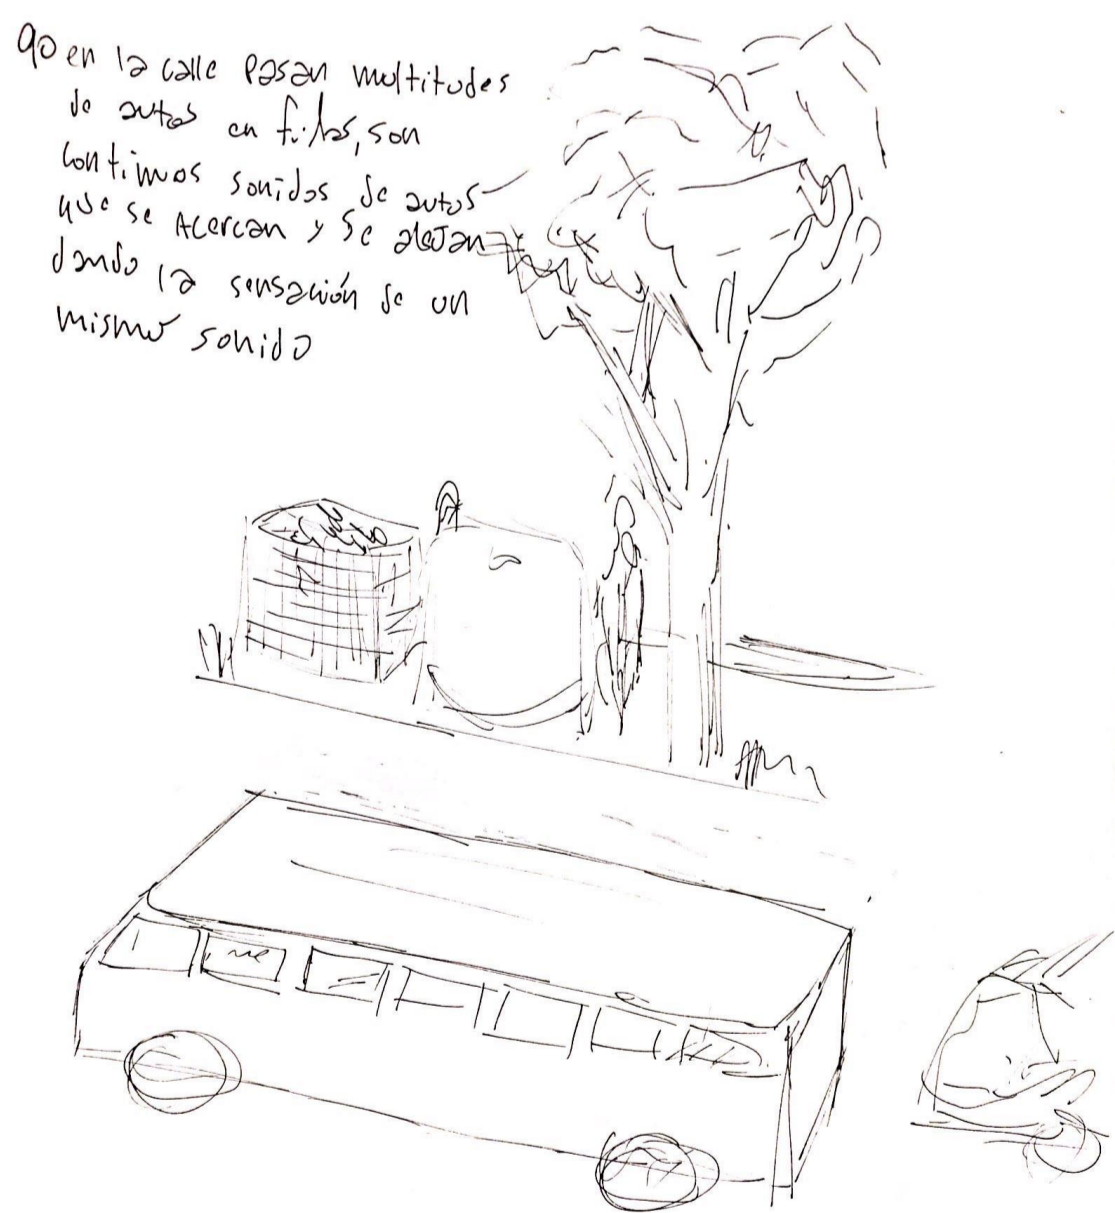 90 en la calle pasan multitudes
de autos en filas, son
continuos sonidos de autos
que se Acercan y se alejan
dando la sensación de un
mismo sonido